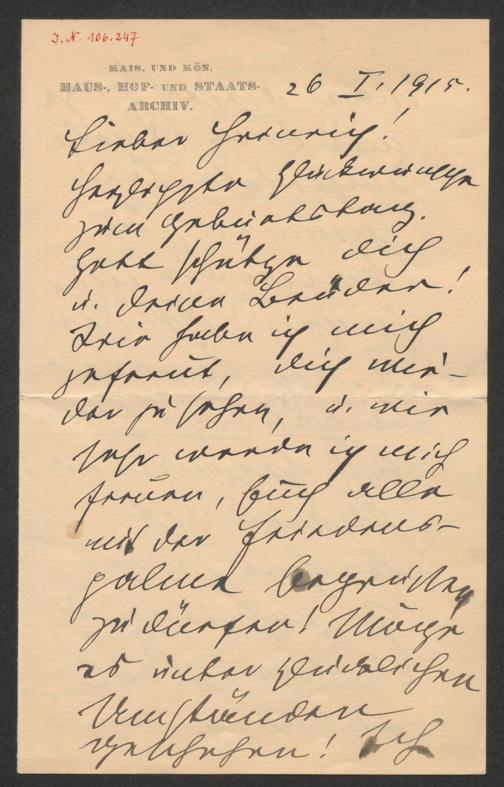 J. N. 106.247
KAIS. UND KÖN.
HAUS-, HOF- UND STAATS-
ARCHIV.
26 I. 1915.
Lieber Heinrich!
Herzlichste Glückwünsche
zum Geburtstag.
Gott schütze dich
u. deine Brüder!
Wie habe ich mich
gefreut, dich wie-
der zu sehen, u. wie
sehr werde ich mich
freuen, Euch alle
mit der Friedens-
palme begrüssen
zu dürfen! Möge
es unter glücklichen
Umständen
geschehen! Ich